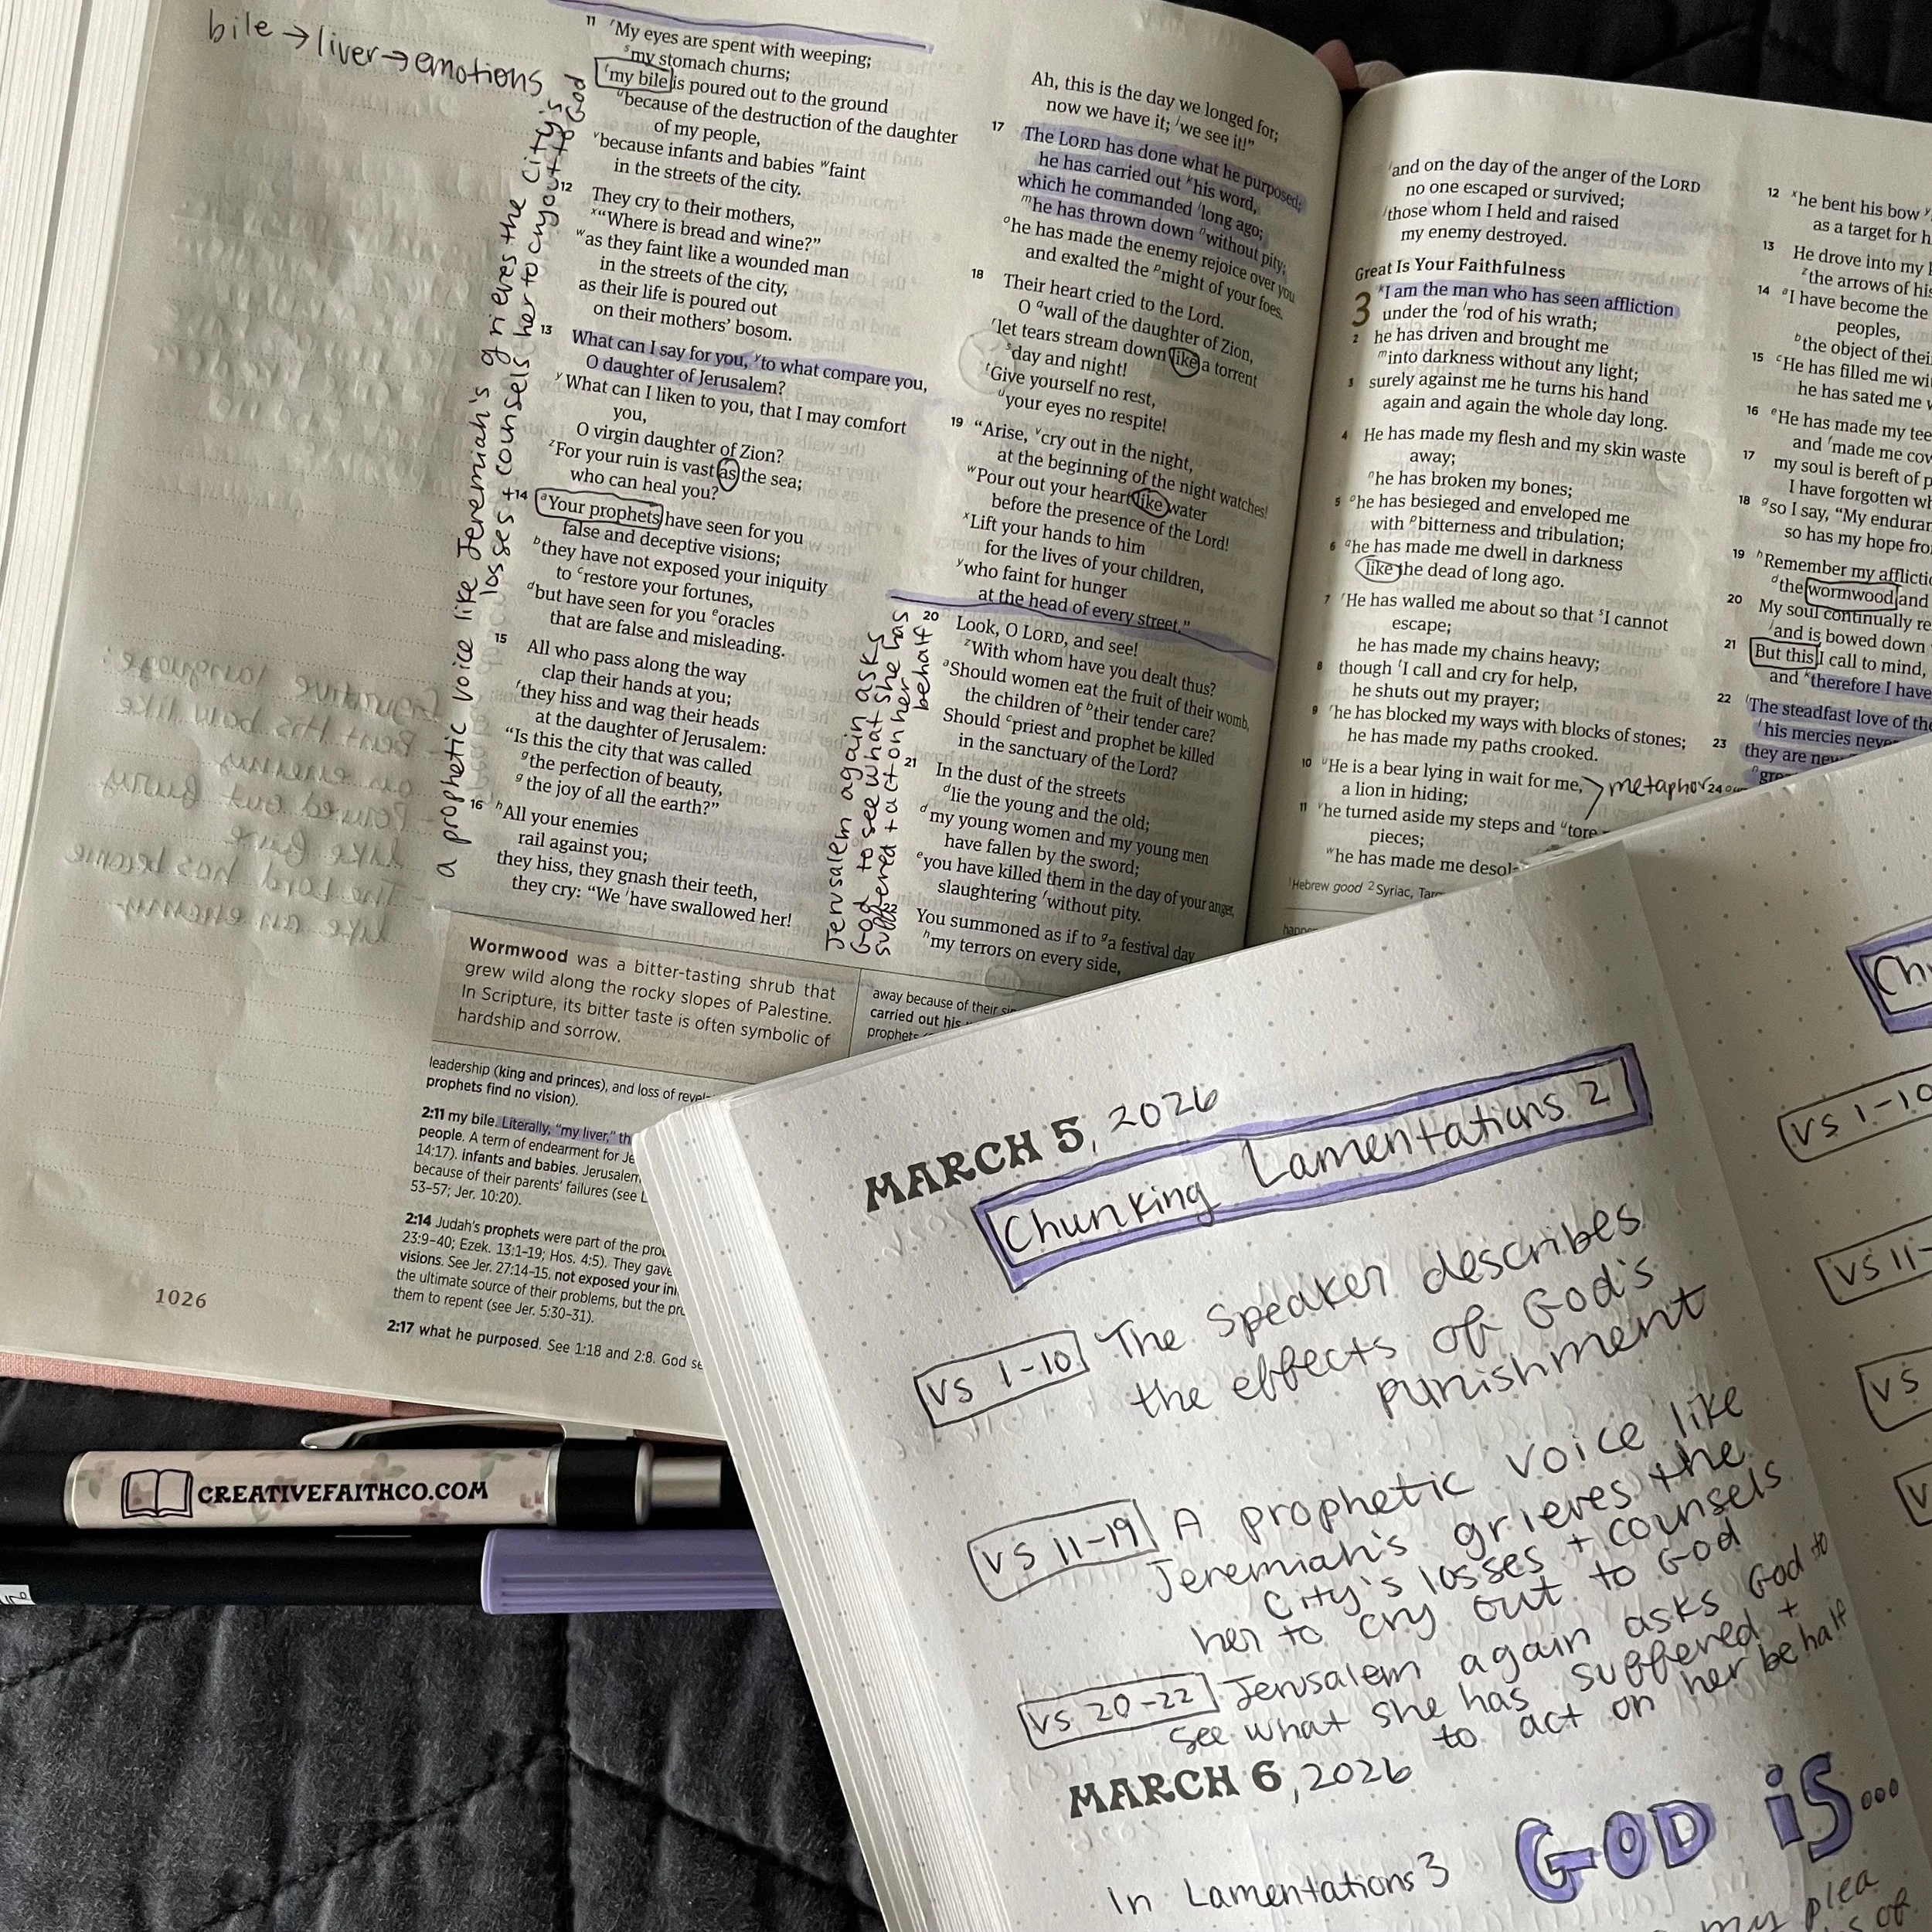 bile → liver → emotions
a prophetic voice like Jeremiah's grieves the city's
losses + counsels her to cry out to God
11 ʳMy eyes are spent with weeping;
ˢmy stomach churns;
ᵗmy bile is poured out to the ground
ᵘbecause of the destruction of the daughter
of my people,
ᵛbecause infants and babies ʷfaint
in the streets of the city.
12 They cry to their mothers,
ˣ“Where is bread and wine?”
ʷas they faint like a wounded man
in the streets of the city,
as their life is poured out
on their mothers' bosom.
13 What can I say for you, ʸto what compare you,
O daughter of Jerusalem?
ʸWhat can I liken to you, that I may comfort
you,
O virgin daughter of Zion?
ᶻFor your ruin is vast as the sea;
who can heal you?
14 ᵃYour prophets have seen for you
false and deceptive visions;
ᵇthey have not exposed your iniquity
to ᶜrestore your fortunes,
ᵈbut have seen for you ᵉoracles
that are false and misleading.
15 All who pass along the way
clap their hands at you;
ᶠthey hiss and wag their heads
at the daughter of Jerusalem:
“Is this the city that was called
ᵍthe perfection of beauty,
ᵍthe joy of all the earth?”
16 ʰAll your enemies
rail against you;
they hiss, they gnash their teeth,
they cry: “We ⁱhave swallowed her!
Ah, this is the day we longed for;
now we have it; ʲwe see it!”
17 The LORD has done what he purposed;
he has carried out ᵏhis word,
which he commanded ˡlong ago;
ᵐhe has thrown down ⁿwithout pity;
ᵒhe has made the enemy rejoice over you
and exalted the ᵖmight of your foes.
18 Their heart cried to the Lord.
O ᑫwall of the daughter of Zion,
ʳlet tears stream down like a torrent
ˢday and night!
ᵗGive yourself no rest,
ᵘyour eyes no respite!
19 “Arise, ᵛcry out in the night,
at the beginning of the night watches!
ʷPour out your heart like water
before the presence of the Lord!
ˣLift your hands to him
for the lives of your children,
ʸwho faint for hunger
at the head of every street.”
Jerusalem again asks
God to see what she has
suffered + act on her
behalf
20 Look, O LORD, and see!
ᶻWith whom have you dealt thus?
ᵃShould women eat the fruit of their womb,
the children of ᵇtheir tender care?
Should ᶜpriest and prophet be killed
in the sanctuary of the Lord?
21 In the dust of the streets
ᵈlie the young and the old;
ᵈmy young women and my young men
have fallen by the sword;
ᵉyou have killed them in the day of your anger,
slaughtering ᶠwithout pity.
22 You summoned as if to ᵍa festival day
ʰmy terrors on every side,
ⁱand on the day of the anger of the LORD
no one escaped or survived;
ʲthose whom I held and raised
my enemy destroyed.
Great Is Your Faithfulness
3 ᵏI am the man who has seen affliction
under the ˡrod of his wrath;
2 he has driven and brought me
ᵐinto darkness without any light;
3 surely against me he turns his hand
again and again the whole day long.
4 He has made my flesh and my skin waste
away;
ⁿhe has broken my bones;
5 ᵒhe has besieged and enveloped me
with ᵖbitterness and tribulation;
6 ᑫhe has made me dwell in darkness
like the dead of long ago.
7 ʳHe has walled me about so that ˢI cannot
escape;
he has made my chains heavy;
8 though ᵗI call and cry for help,
he shuts out my prayer;
9 ʳhe has blocked my ways with blocks of stones;
he has made my paths crooked.
10 ᵘHe is a bear lying in wait for me,
a lion in hiding;
metaphor
11 ᵛhe turned aside my steps and ᵘtore
pieces;
ʷhe has made me
¹Hebrew good ²Syriac,
12 ˣhe bent his bow
as a target for
13 He drove into my
ᶻthe arrows of his
14 ᵃI have become the
peoples,
ᵇthe object of
15 ᶜHe has filled me
he has sated me
16 ᵉHe has made my
and ᶠmade me
17 my soul is bereft of
I have forgotten
18 ᵍso I say, “My
so has my hope
19 ʰRemember my
ᵈthe wormwood and
20 My soul continually
ⁱand is bowed down
21 But this I call to mind,
and ᵏtherefore I have
22 ˡThe steadfast love of
ˡhis mercies
23 they are
24
Wormwood was a bitter-tasting shrub that
grew wild along the rocky slopes of Palestine.
In Scripture, its bitter taste is often symbolic of
hardship and sorrow.
away because of their
carried out his
prophets
leadership (king and princes), and loss of
prophets find no vision).
2:11 my bile. Literally, “my liver,”
people. A term of endearment for
14:17). infants and babies.
because of their parents' failures (see
53–57; Jer. 10:20).
2:14 Judah's prophets were part of the
23:9–40; Ezek. 13:1–19; Hos. 4:5). They gave
visions. See Jer. 27:14–15. not exposed your
the ultimate source of their problems, but the
them to repent (see Jer. 5:30–31).
2:17 what he purposed. See 1:18 and 2:8. God
1026
CREATIVEFAITHCO.COM
MARCH 5, 2026
Chunking Lamentations 2
vs 1-10 The Speaker describes
the effects of God's
punishment
vs 11-19 A prophetic voice like
Jeremiah's grieves the
city's losses + counsels
her to cry out to God
vs 20-22 Jerusalem again asks God to
see what she has suffered +
to act on her behalf
MARCH 6, 2026
GOD iS...
In Lamentations 3
my plea
of
vs 1-10
vs 11-
vs